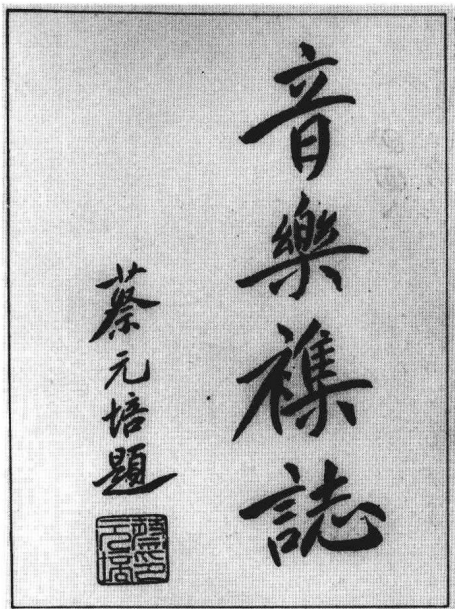 音樂襍誌
蔡元培題
蔡元培印